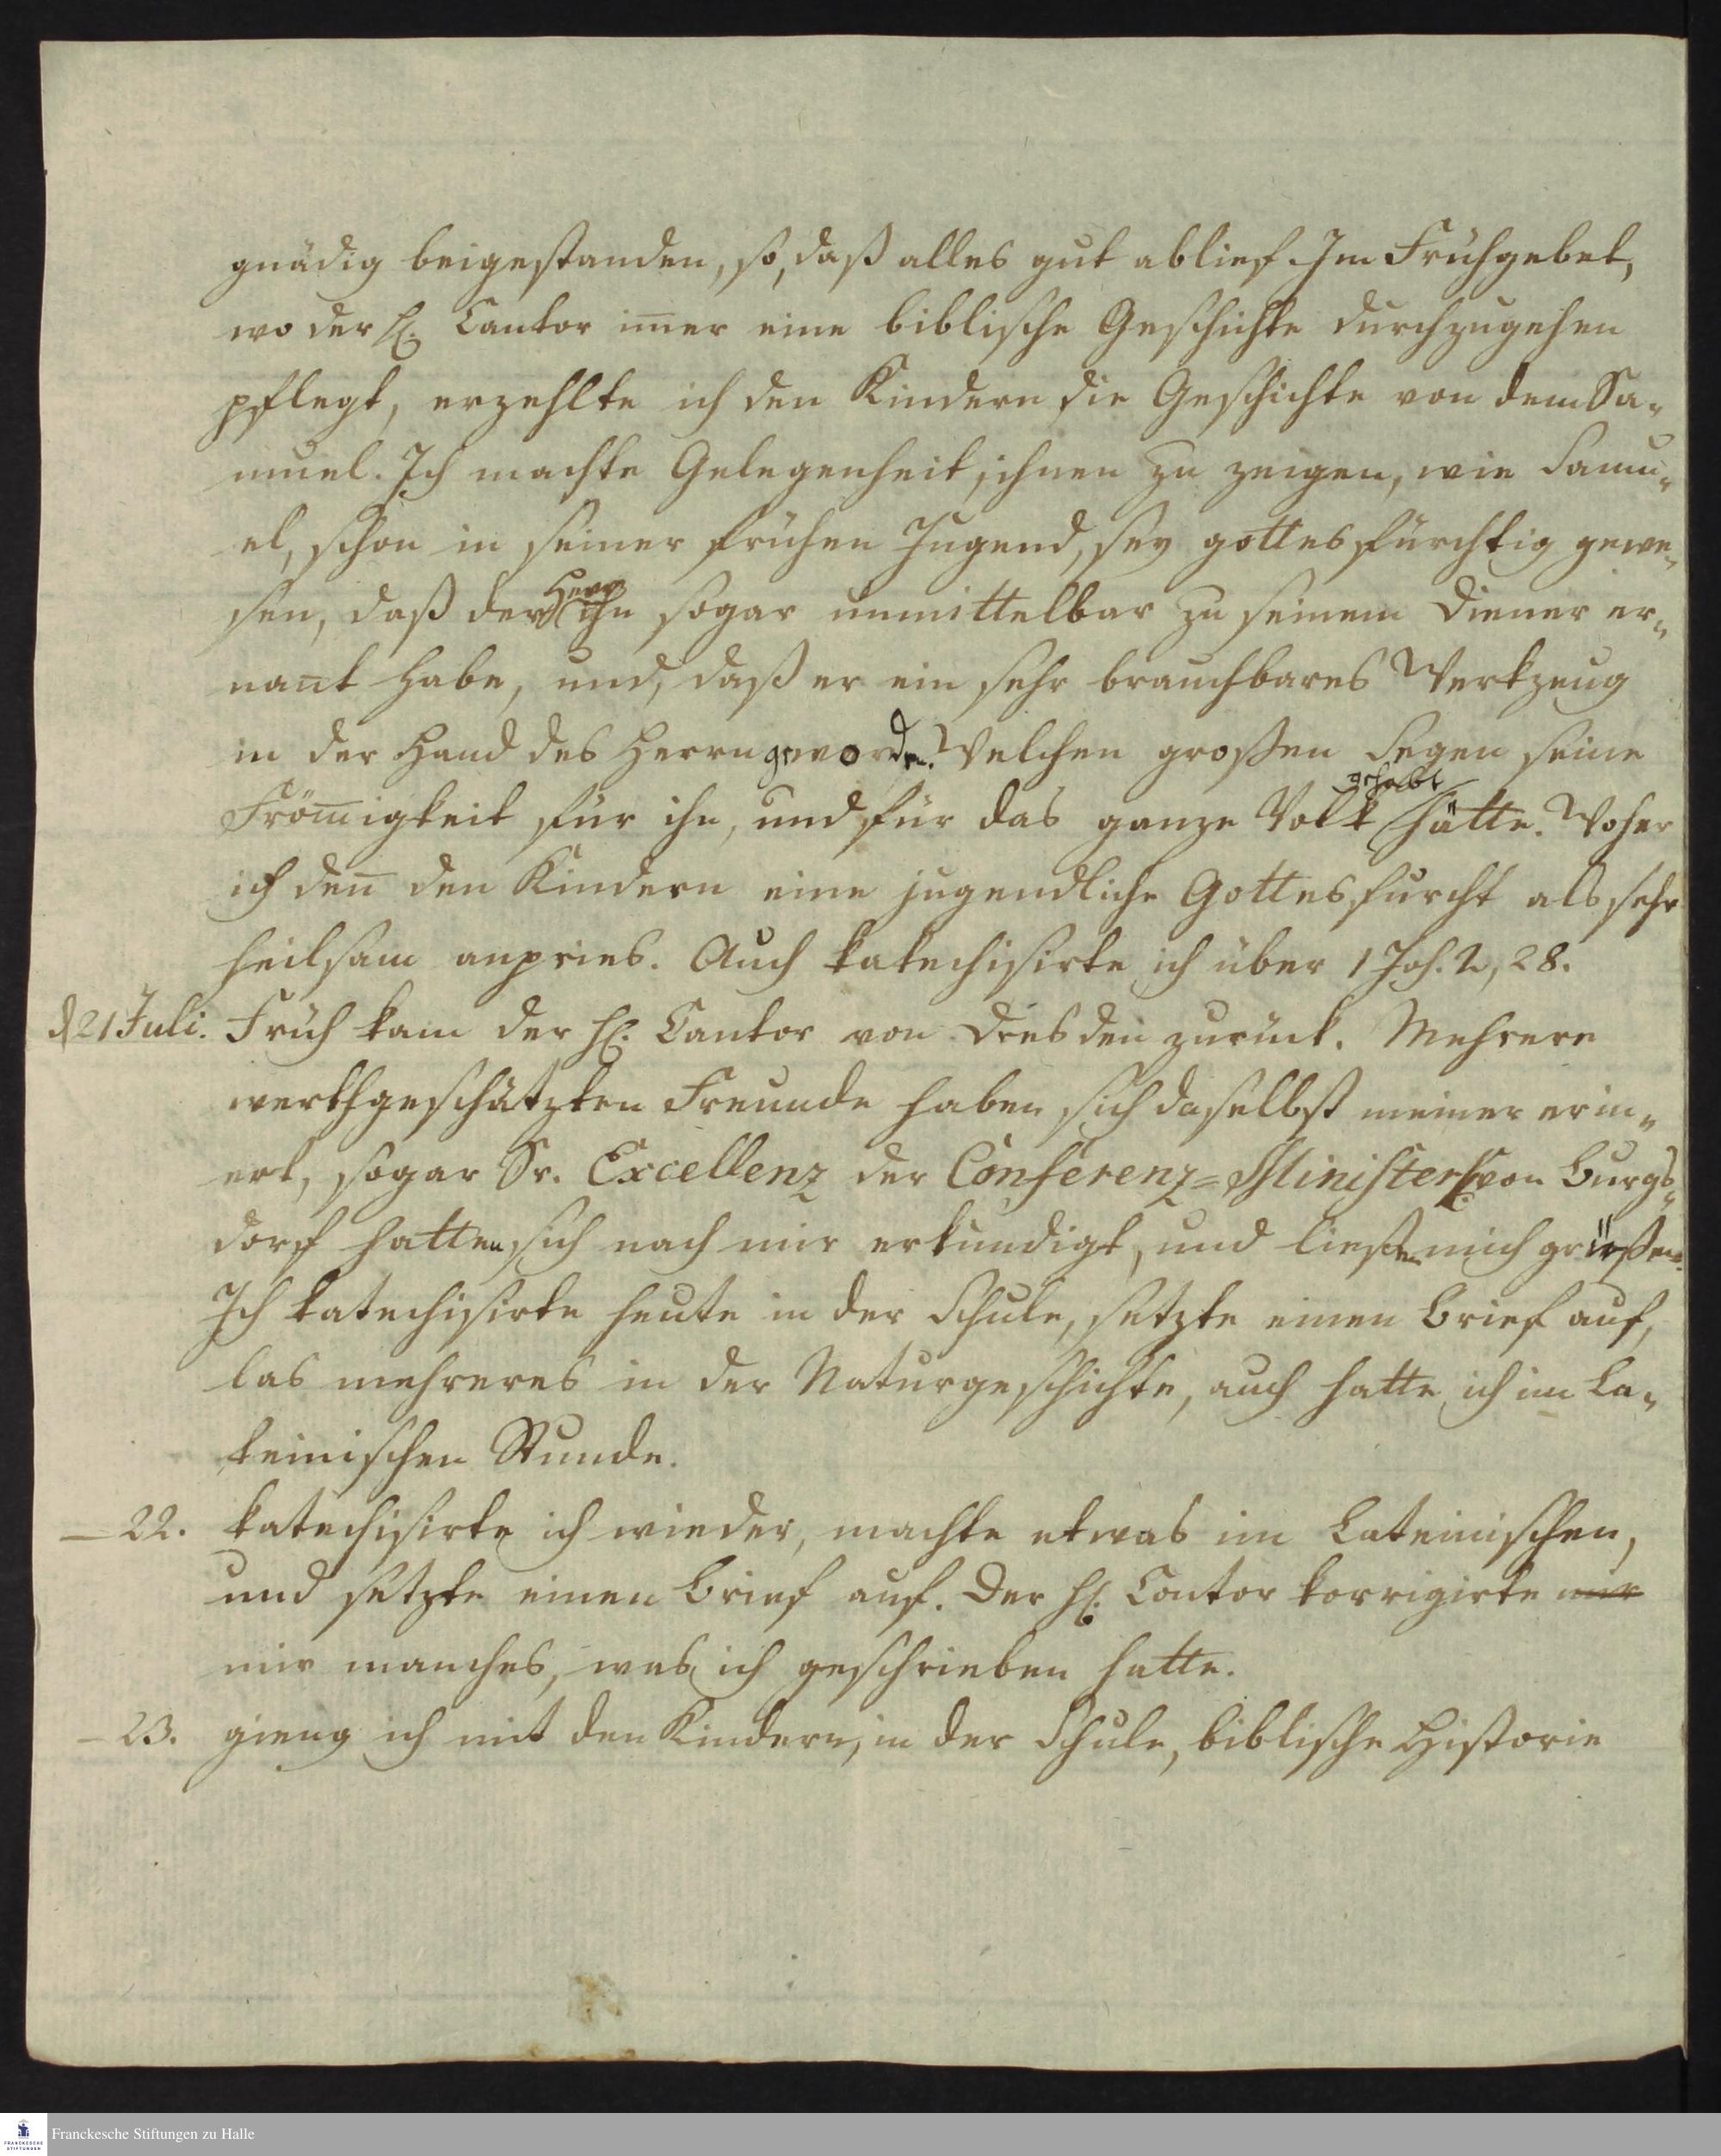 gnädig beigestanden, so, daß alles gut ablief. Im Frühgebet,
wo der H. Cantor im̄er eine biblische Geschichte durchzugehen
pflegt, erzehlte ich den Kindern die Geschichte von dem Sa-
muel. Ich machte Gelegenheit, ihnen zu zeigen, wie Samu-
el, schon in seiner frühen Jugend, sey gottesfürchtig gewe-
sen, daß der Herr ihn sogar unmittelbar zu seinem Diener er-
nan̄t habe, und, daß er ein sehr brauchbares Werkzeug
in der Hand des Herrn geworden. Welchen großen Segen seine
Fröm̄igkeit für ihn, und für das ganze Volk gehabt hätte. Woher
ich den̄ den Kindern eine jugendliche Gottesfurcht als sehr
heilsam anpries. Auch katechisirte ich über 1 Joh. 2, 28.
d 21 Juli. Früh kam der H. Cantor von Dresden zurück. Mehrere
werthgeschätzten Freunde haben sich daselbst meiner erin-
ert, sogar Sr. Excellenz der Conferenz=Minister H. von Burgs-
dorf hatten sich nach mir erkundigt, und ließen mich grüßen.
Ich katechisirte heute in der Schule, setzte einen Brief auf,
las mehreres in der Naturgeschichte, auch hatte ich im La-
teinischen Stunde.
— 22. katechisirte ich wieder, machte etwas im Lateinischen,
und setzte einen Brief auf. Der H. Cantor korrigirte mir
mir manches, was ich geschrieben hatte.
— 23. gieng ich mit den Kindern, in der Schule, biblische Historie
Franckesche Stiftungen zu Halle
FRANCKESCHE
STIFTUNGEN